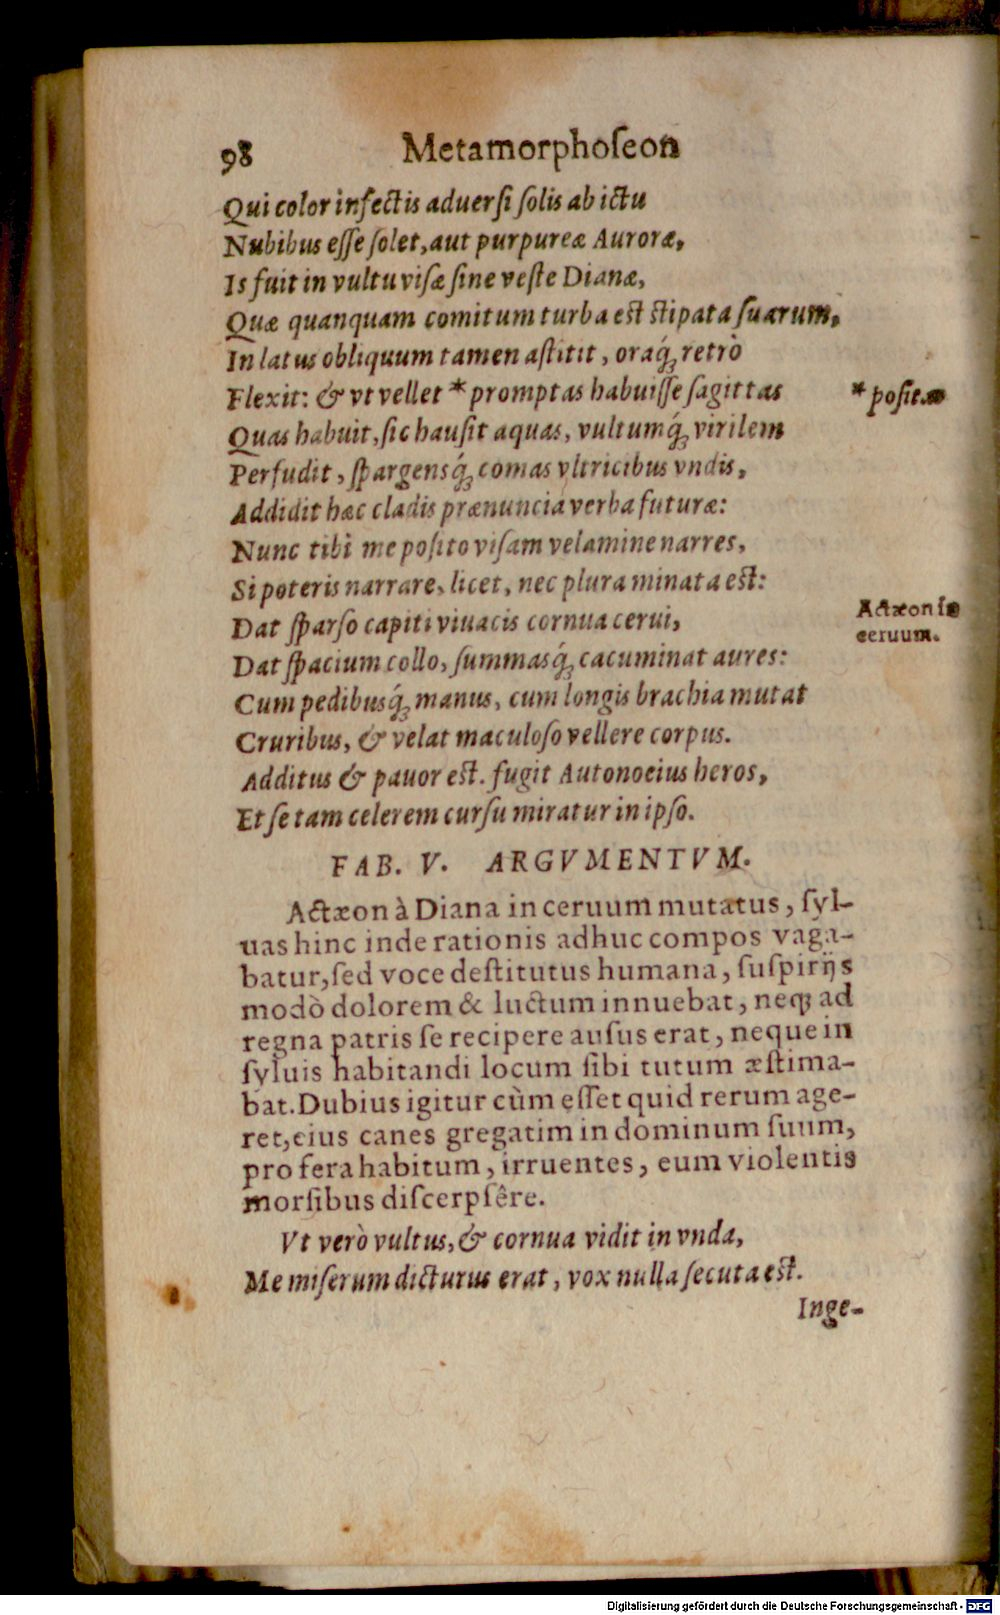 98 Metamorphoſeon
Qui color infectis aduerſi ſolis ab ictu
Nubibus eſſe ſolet, aut purpureæ Auroræ,
Is fuit in vultu viſæ ſine veſte Dianæ,
Quæ quanquam comitum turba est stipata ſuarum,
In latus obliquum tamen aſtitit, oraq́ꝫ retrò
Flexit: & vt vellet * promptas habuiſſe ſagittas
* poſit.
Quas habuit, ſic hauſit aquas, vultumq́ꝫ virilem
Perfudit, ſpargensq́ꝫ comas vltricibus vndis,
Addidit hæc cladis prænuncia verba futuræ:
Nunc tibi me poſito viſam velamine narres,
Si poteris narrare, licet, nec plura minata est:
Actæon in
ceruum.
Dat ſparſo capiti viuacis cornua cerui,
Dat ſpacium collo, ſummasq́ꝫ cacuminat aures:
Cum pedibusq́ꝫ manus, cum longis brachia mutat
Cruribus, & velat maculoſo vellere corpus.
Additus & pauor est. fugit Autonoeius heros,
Et ſe tam celerem curſu miratur in ipſo.
FAB. V. ARGVMENTVM.
Actæon à Diana in ceruum mutatus, ſyl-
uas hinc inde rationis adhuc compos vaga-
batur, ſed voce deſtitutus humana, ſuſpirijs
modò dolorem & luctum innuebat, neqꝫ ad
regna patris ſe recipere auſus erat, neque in
ſyluis habitandi locum ſibi tutum æſtima-
bat. Dubius igitur cùm eſſet quid rerum age-
ret, eius canes gregatim in dominum ſuum,
pro fera habitum, irruentes, eum violentis
morſibus diſcerpſêre.
Vt verò vultus, & cornua vidit in vnda,
Me miſerum dicturus erat, vox nulla ſecuta est.
Inge-
Digitalisierung gefördert durch die Deutsche Forschungsgemeinschaft - DFG